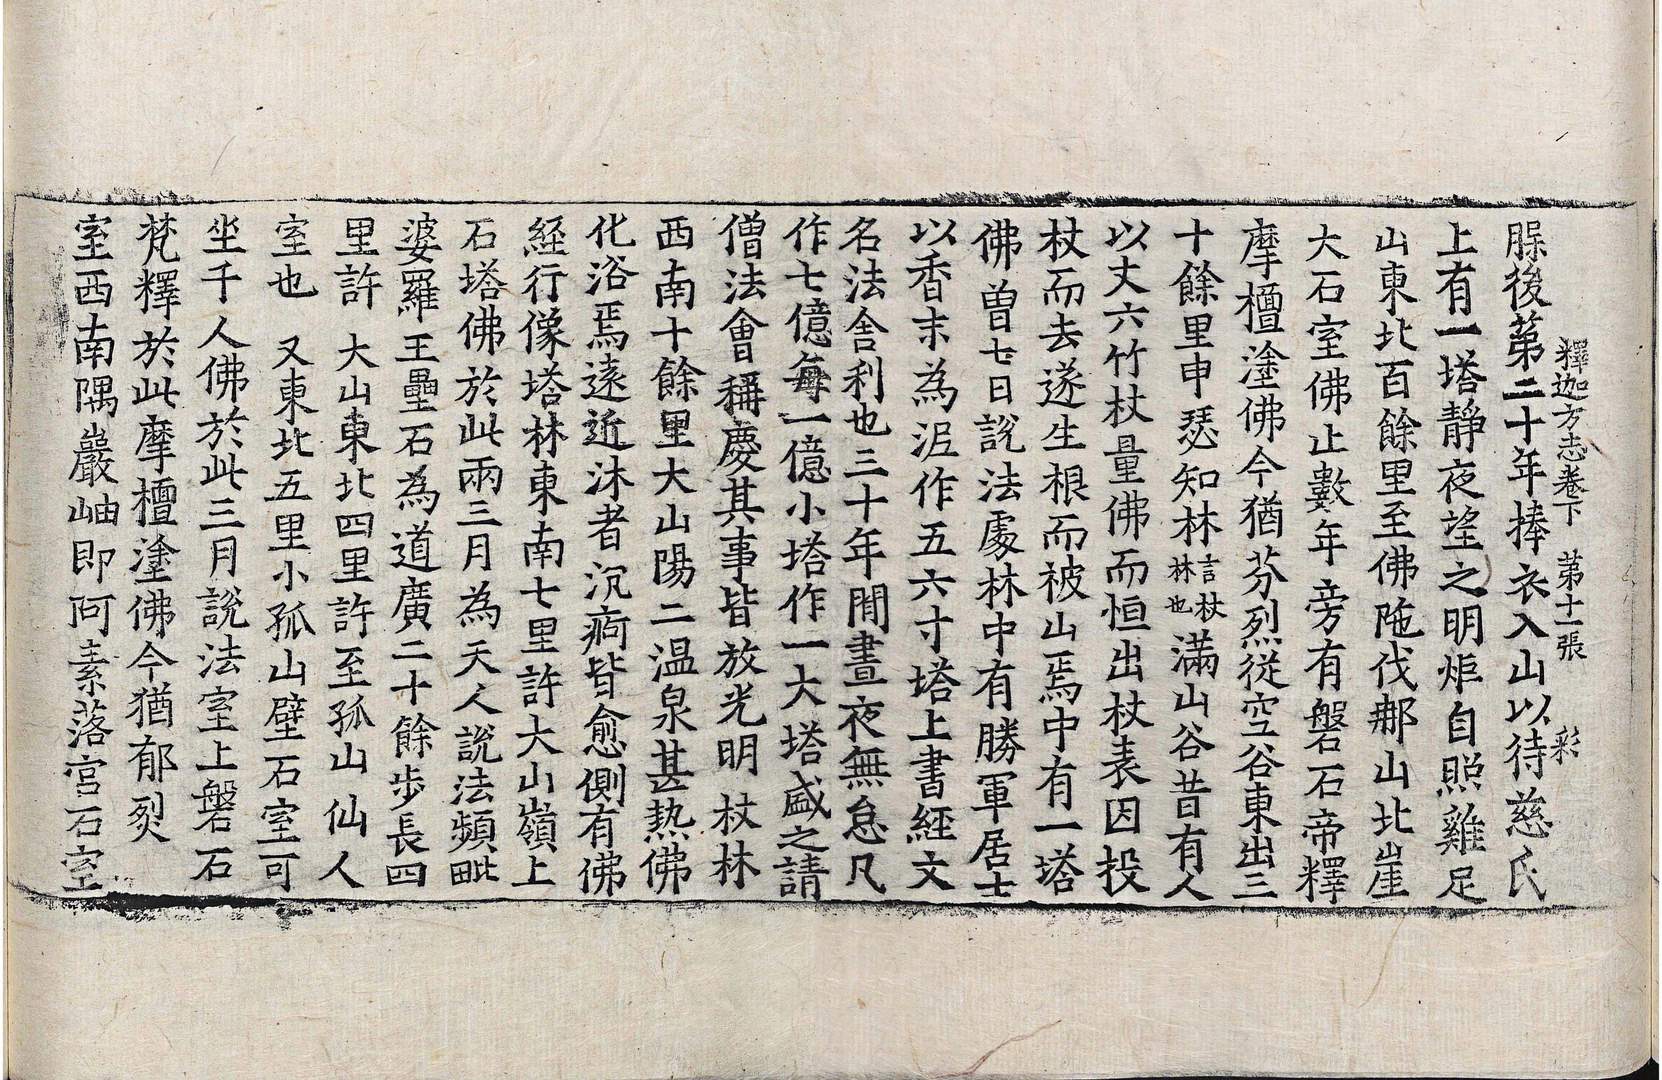 釋迦方志卷下 第十一張 彩
腂後第二十年捧衣入山以待慈氏
上有一塔静夜望之明炬自照雞足
山東北百餘里至佛陁伐𨚗山北崖
大石室佛止數年旁有磐石帝釋
摩檀塗佛今猶芬烈從空谷東出三
十餘里申瑟知林言杖林也滿山谷昔有人
以丈六竹杖量佛而恒出杖表因投
杖而去遂生根而被山焉中有一塔
佛曽七日說法處林中有勝軍居士
以香末為泥作五六寸塔上書經文
名法舍利也三十年閒晝夜無怠凡
作七億每一億小塔作一大塔盛之請
僧法會稱慶其事皆放光明杖林
西南十餘里大山陽二温泉甚熱佛
化浴焉遠近沐者沉痾皆愈側有佛
經行像塔林東南七里許大山嶺上
石塔佛於此兩三月為天人說法頻毗
婆羅王壘石為道廣二十餘步長四
里許 大山東北四里許至孤山仙人
室也 又東北五里小孤山壁石室可
坐千人佛於此三月說法室上磐石
梵釋於此摩檀塗佛今猶郁烈
室西南隅巖岫即阿素落宫石室